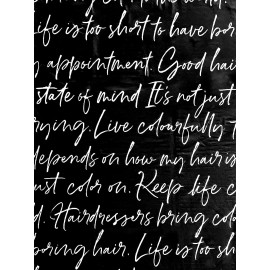 Life is too short to have bor
y appointment. Good hai
state of mind It's not just
rying. Live colourfully
depends on how my hair is
ust color on. Keep life c
d. Hairdressers bring colo
boring hair. Life is too sh